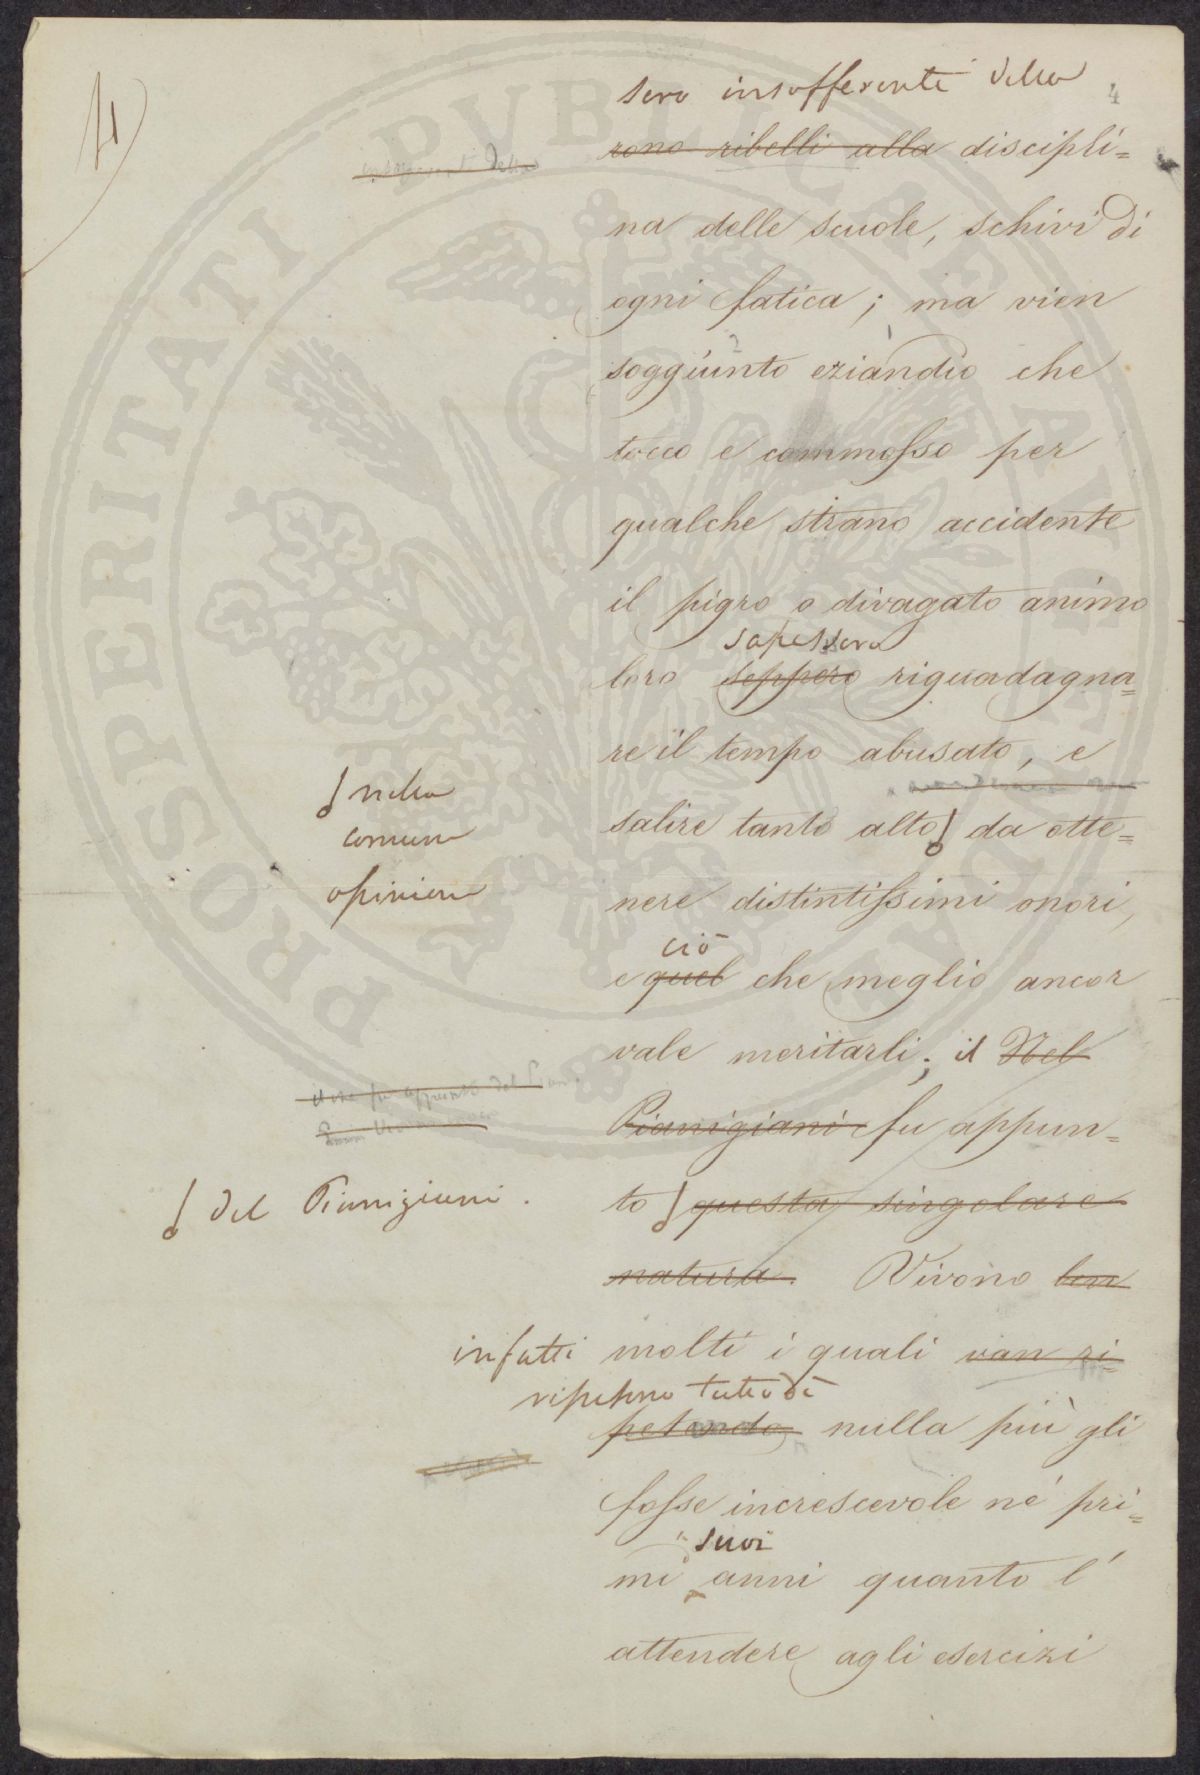 4
4
sero insofferenti della
rono ribelli alla discipli=
na delle scuole, schivi di
ogni fatica; ma vien
soggiunto eziandio che
tocco e commosso per
qualche strano accidente
il pigro o divagato animo
sapessero
loro seppero riguadagna=
re il tempo abusato, e
salire tanto alto da otte=
nella
comune
opinione
nere distintissimi onori,
ciò
e quel che meglio ancor
vale meritarli; il Nel
Pianigiani fu appun=
to questa singolare
del Pianigiani.
natura. Vivono ben
infatti molti i quali van ri=
ripetono tuttodì
petendo nulla più gli
fosse increscevole né pri=
suoi
mi anni quanto l'
attendere agli esercizi
PROSPERITATI PVBLICAE AVGENDAE